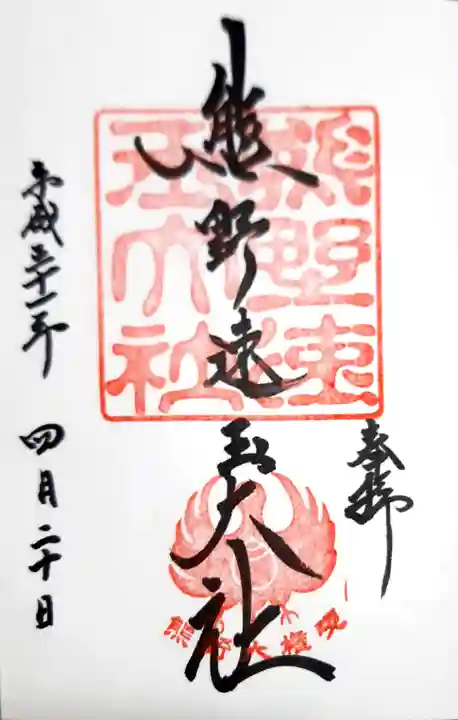 奉拝
熊野速玉大社
熊野速
玉大社
熊野大権現
平成三十一年
四月二十日